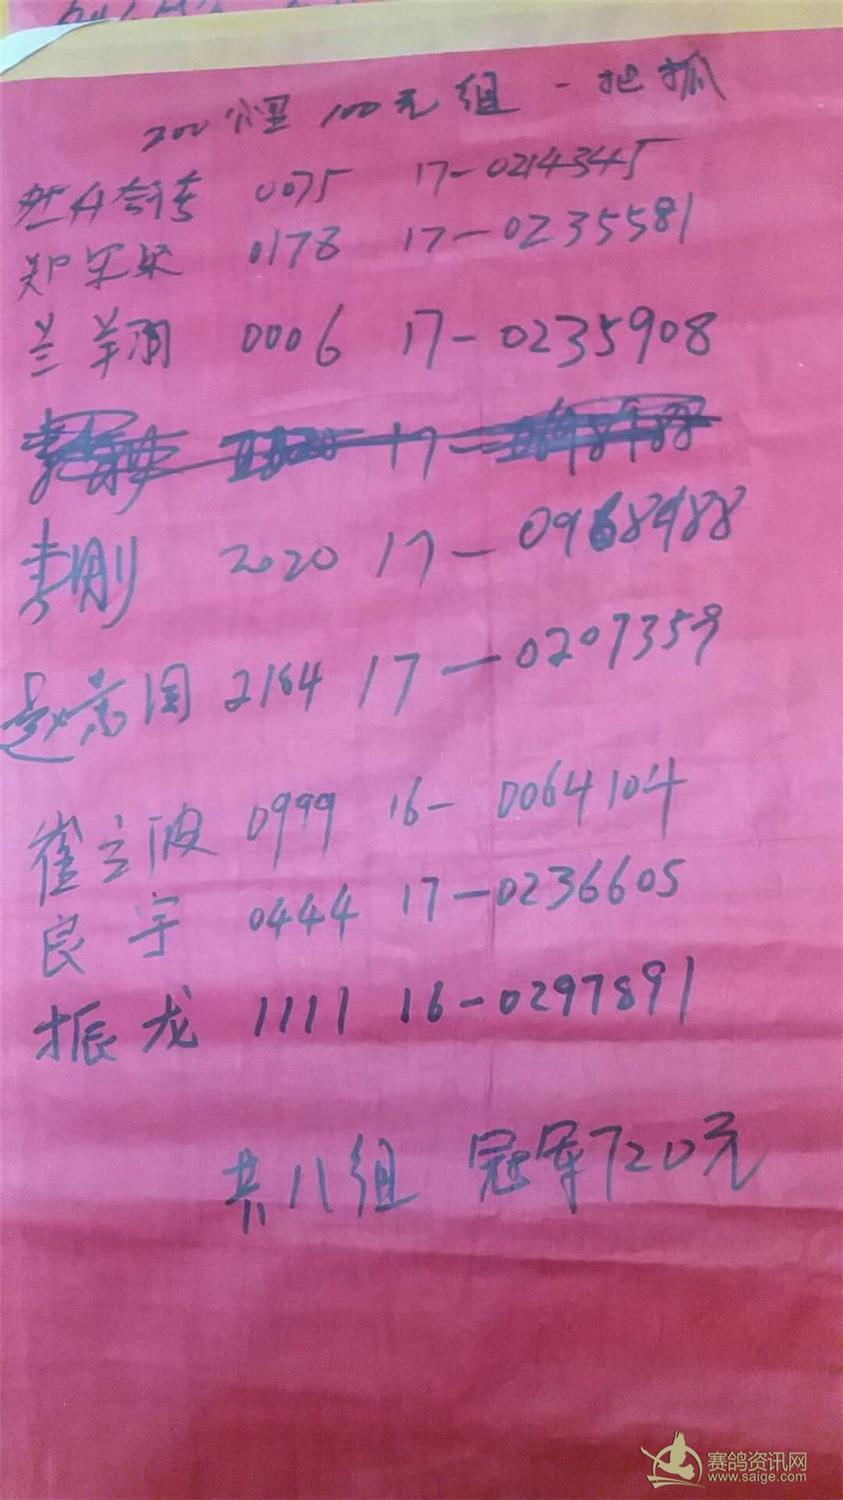 200公里 100元组 一把抓
0075 17-0214345
郑军梁 0178 17-0235581
兰羊润 0006 17-0235908
17-
李刚 2020 17-0968988
赵景国 2184 17-0207359
崔立波 0999 16-0064104
良宇 0444 17-0236605
振龙 1111 16-0297891
共八组 冠军720元
赛鸽资讯网
www.saige.com